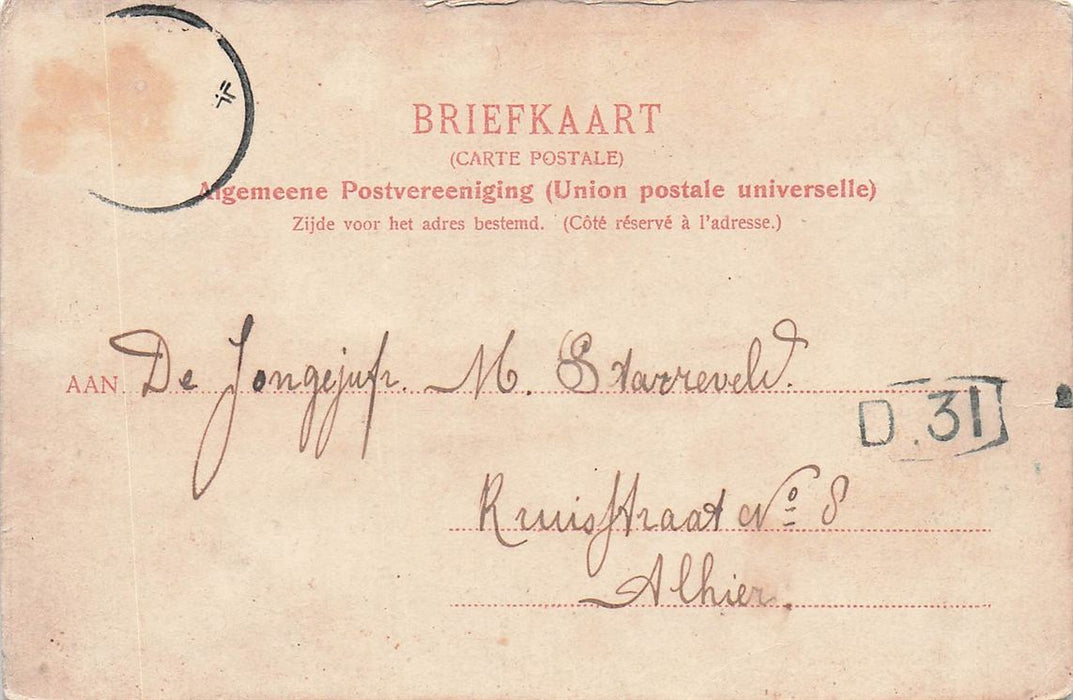 BRIEFKAART
(CARTE POSTALE)
Algemeene Postvereeniging (Union postale universelle)
Zijde voor het adres bestemd. (Côté réservé à l'adresse.)
AAN De Jongejufr. M. Starreveld.
D.31
Kruisstraat No 8
Alhier.